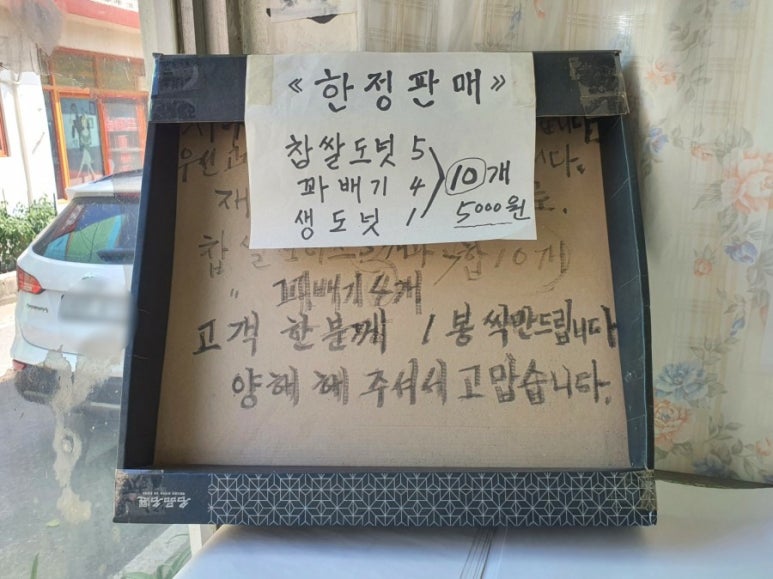 《한정판매》
찹쌀도넛 5
꽈배기 4
생도넛 1
10개
5000원
찹쌀
합10개
〃 꽈배기 4개
고객 한분께 1봉 씩만드립니다
양해 해 주셔서 고맙습니다.